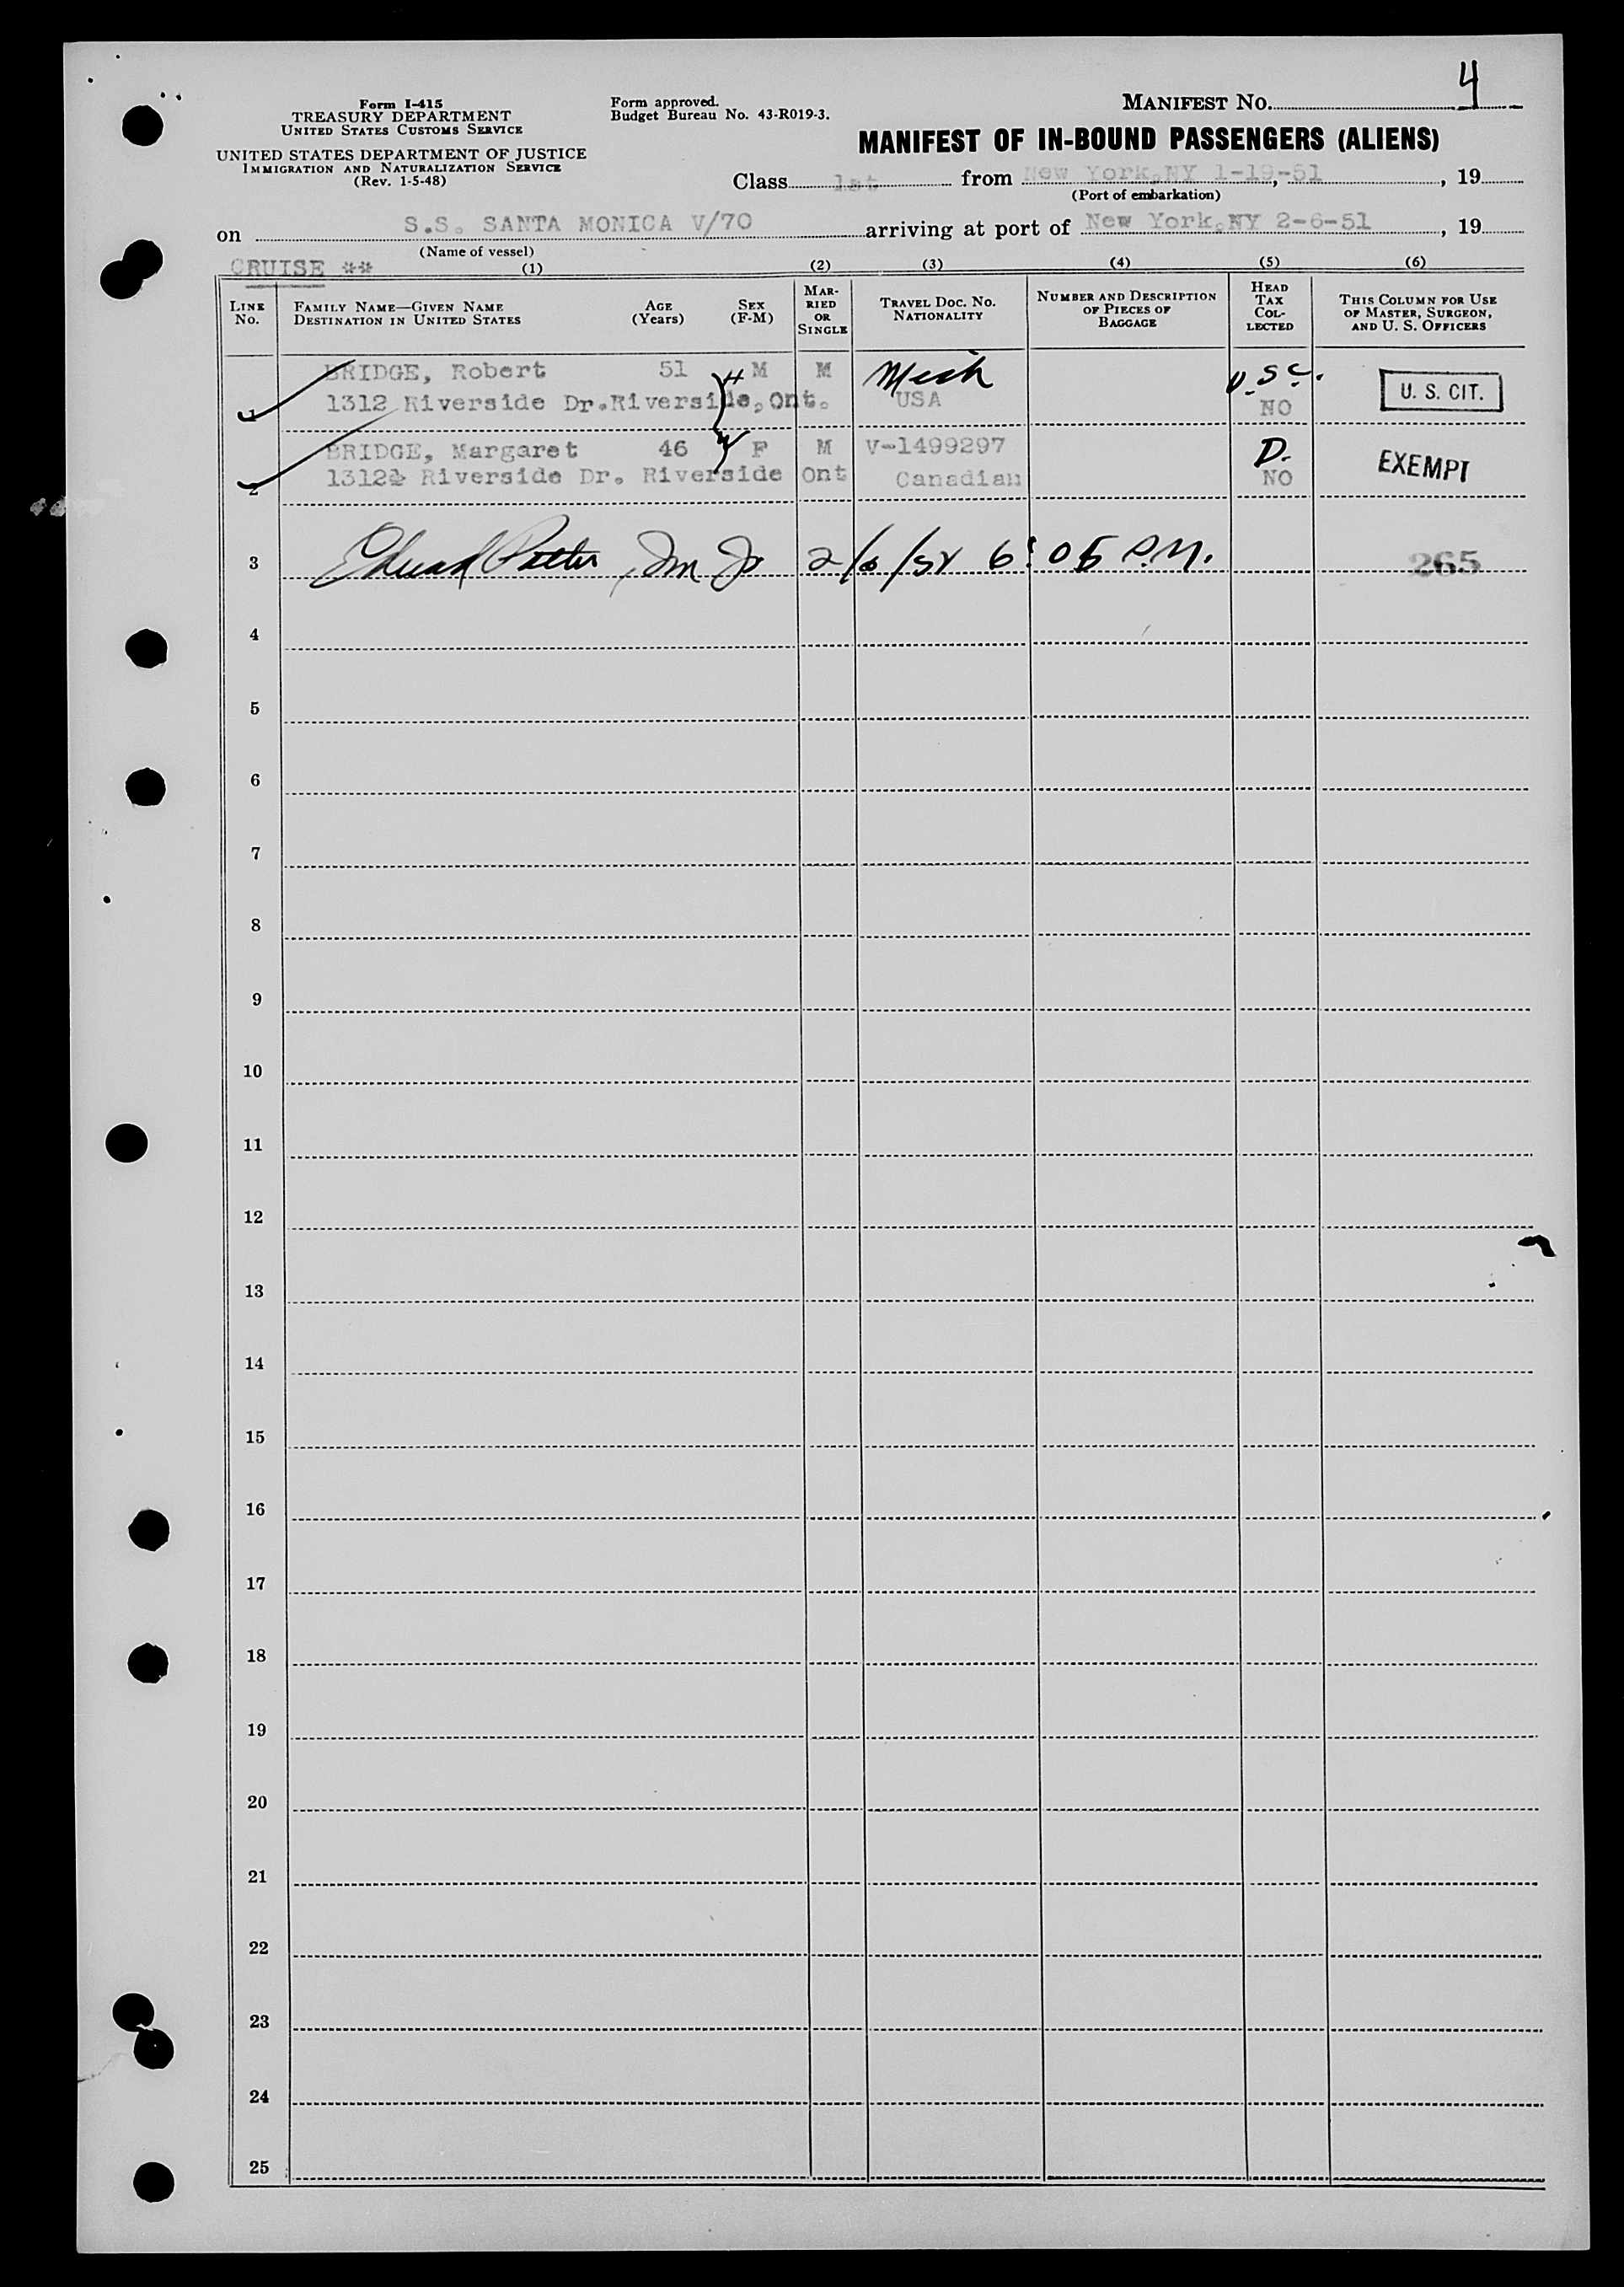 4
Form I-415
TREASURY DEPARTMENT
UNITED STATES CUSTOMS SERVICE
UNITED STATES DEPARTMENT OF JUSTICE
IMMIGRATION AND NATURALIZATION SERVICE
(Rev. 1-5-48)
Form approved.
Budget Bureau No. 43-R019-3.
MANIFEST NO.
MANIFEST OF IN-BOUND PASSENGERS (ALIENS)
Class 1st from New York,NY 1-19-51, 19
(Port of embarkation)
on S.S. SANTA MONICA V/70 arriving at port of New York,NY 2-6-51, 19
(Name of vessel)
CRUISE **
(1) (2) (3) (4) (5) (6)
LINE NO.
FAMILY NAME—GIVEN NAME
DESTINATION IN UNITED STATES
AGE (Years)
SEX (F-M)
MAR-
RIED
OR
SINGLE
TRAVEL DOC. NO.
NATIONALITY
NUMBER AND DESCRIPTION
OF PIECES OF
BAGGAGE
HEAD
TAX
COL-
LECTED
THIS COLUMN FOR USE
OF MASTER, SURGEON,
AND U. S. OFFICERS
1 BRIDGE, Robert 51 H M M Mich U.S.C. U. S. CIT.
1312 Riverside Dr.Riverside,Ont. USA NO
2 BRIDGE, Margaret 46 W F M V-1499297 D. EXEMPT
1312 Riverside Dr. Riverside Ont Canadian NO
3 6:05 P.M. 265
4
5
6
7
8
9
10
11
12
13
14
15
16
17
18
19
20
21
22
23
24
25